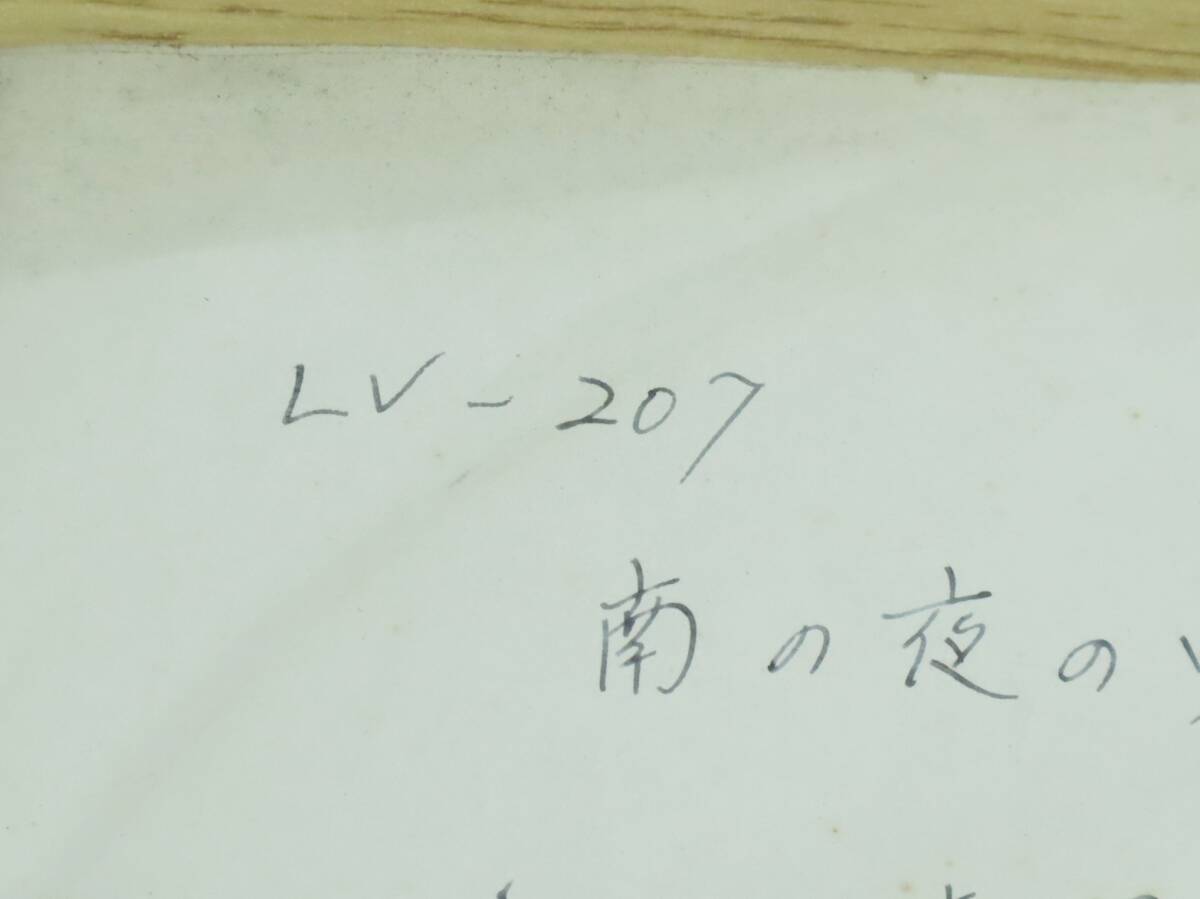 LV-207
南の夜の